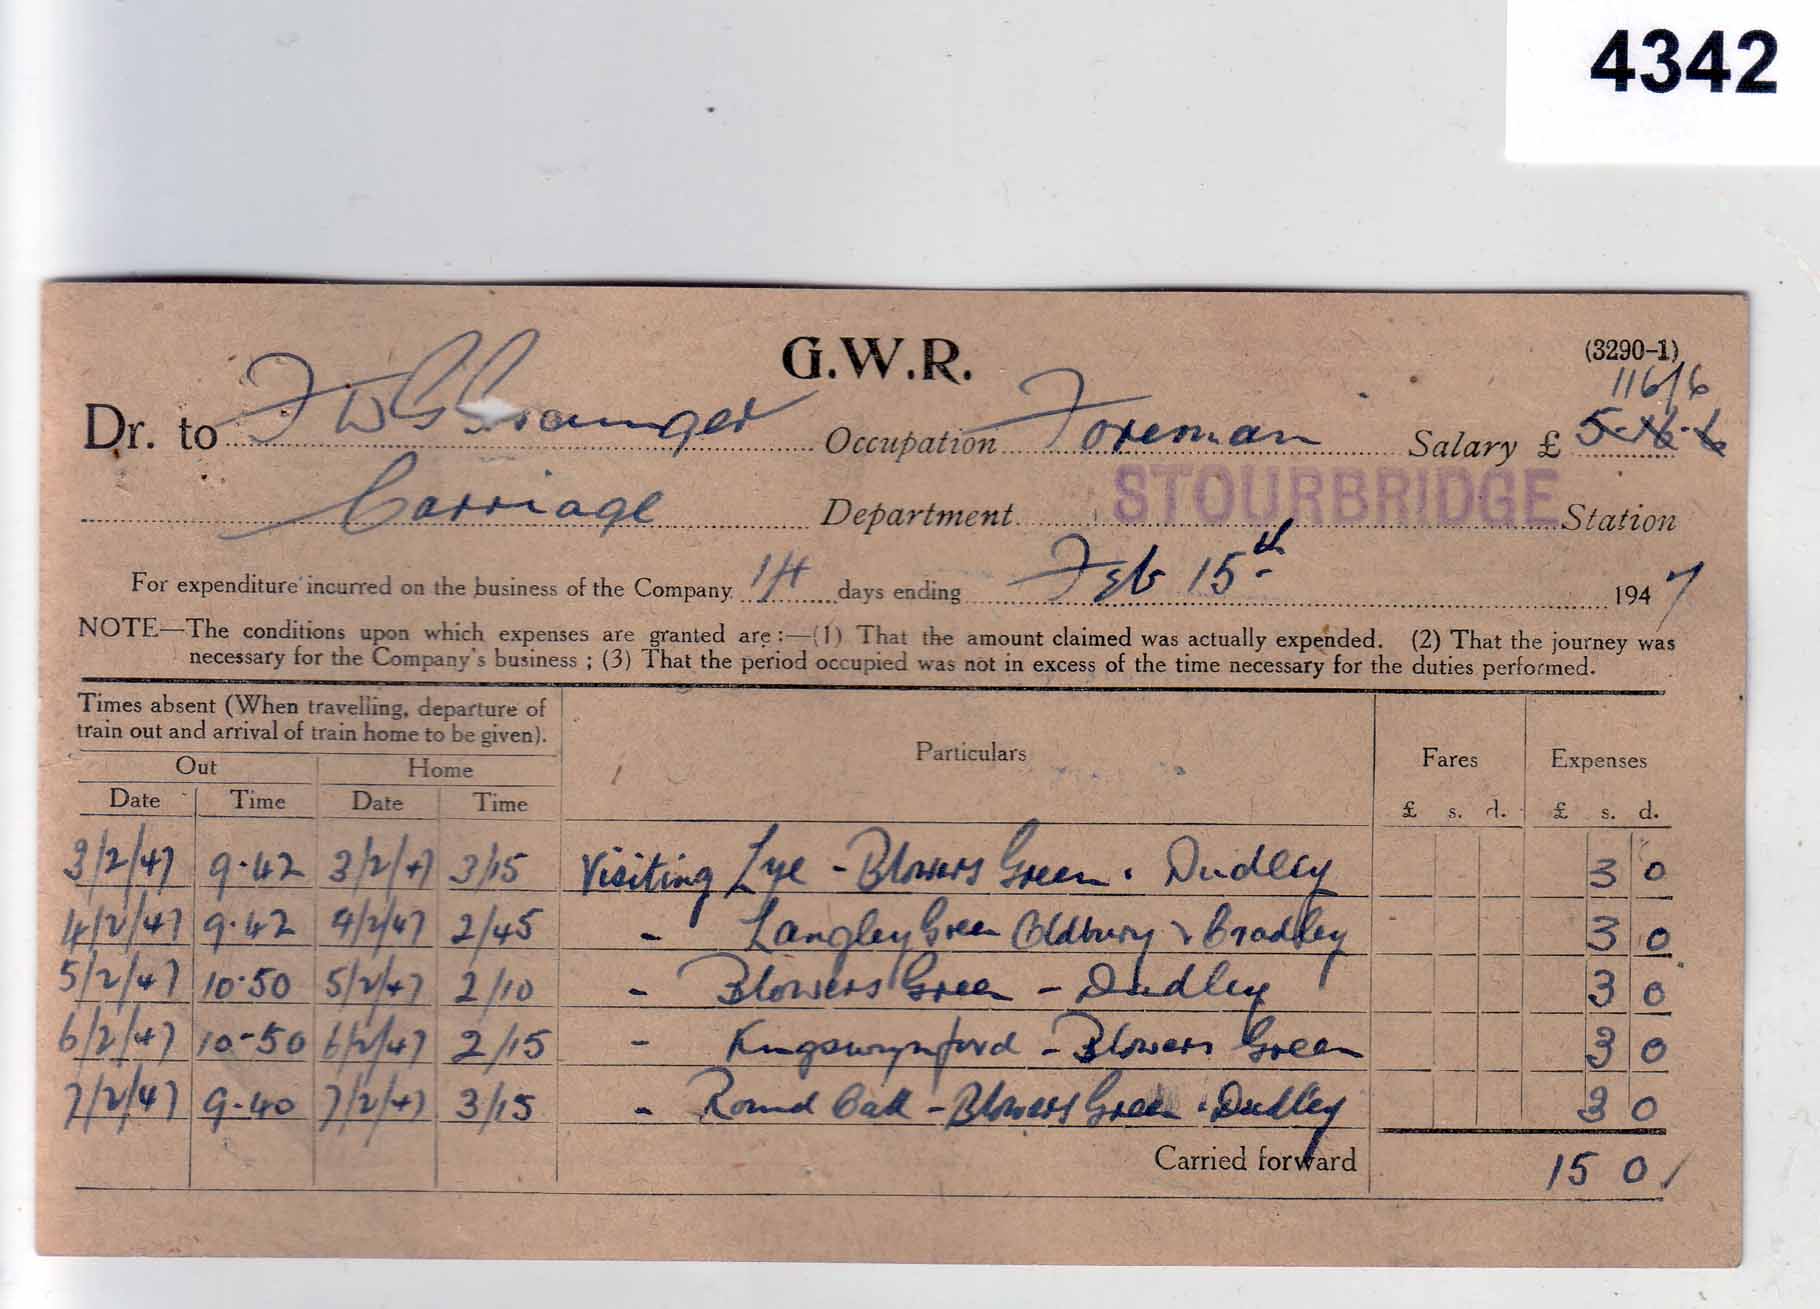 4342
G.W.R.
(3290-1)
116/6
Dr. to F W G Grainger Occupation Foreman Salary £ 5-16-6
Carriage Department STOURBRIDGE Station
For expenditure incurred on the business of the Company 14 days ending Feb 15th 1947
NOTE—The conditions upon which expenses are granted are :—(1) That the amount claimed was actually expended. (2) That the journey was
necessary for the Company's business ; (3) That the period occupied was not in excess of the time necessary for the duties performed.
Times absent (When travelling, departure of
train out and arrival of train home to be given).
Particulars Fares Expenses
Out Home
Date Time Date Time £ s. d. £ s. d.
3/2/47 9.42 3/2/47 3/15 Visiting Lye - Blowers Green . Dudley 3 0
4/2/47 9.42 4/2/47 2/45 - Langley Green Oldbury & Bradley 3 0
5/2/47 10.50 5/2/47 2/10 - Blowers Green - Dudley 3 0
6/2/47 10-50 6/2/47 2/15 - Kingswynford - Blowers Green 3 0
7/2/47 9.40 7/2/47 3/15 - Round Oak - Blowers Green . Dudley 3 0
Carried forward 15 0 /